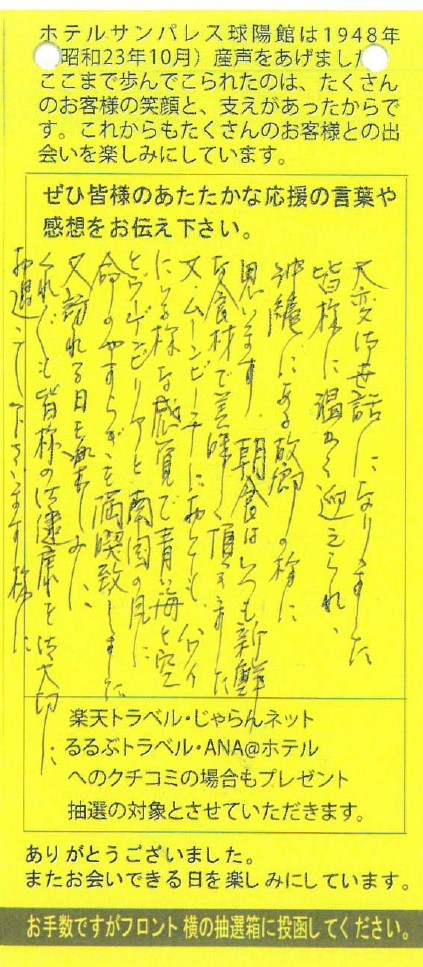 ホテルサンパレス球陽館は1948年
昭和23年10月）産声をあげました
ここまで歩んでこられたのは、たくさん
のお客様の笑顔と、支えがあったからで
す。これからもたくさんのお客様との出
会いを楽しみにしています。
ぜひ皆様のあたたかな応援の言葉や
感想をお伝え下さい。
大変お世話になりました
皆様に温かく迎えられ、
沖縄にある故郷の様に
思います。朝食はいつも新鮮
な食材で美味しく頂きました
又、ムーンビーチにおいても、ハワイ
にいる様な感覚で青い海と空
とブーゲンビリアと南国の風に
命のやすらぎを満喫致しました
又訪れる日を楽しみに、
くれぐれも皆様の御健康を大切に
お過ごし下さいます様に
楽天トラベル・じゃらんネット
るるぶトラベル・ANA@ホテル
へのクチコミの場合もプレゼント
抽選の対象とさせていただきます。
ありがとうございました。
またお会いできる日を楽しみにしています。
お手数ですがフロント横の抽選箱に投函してください。